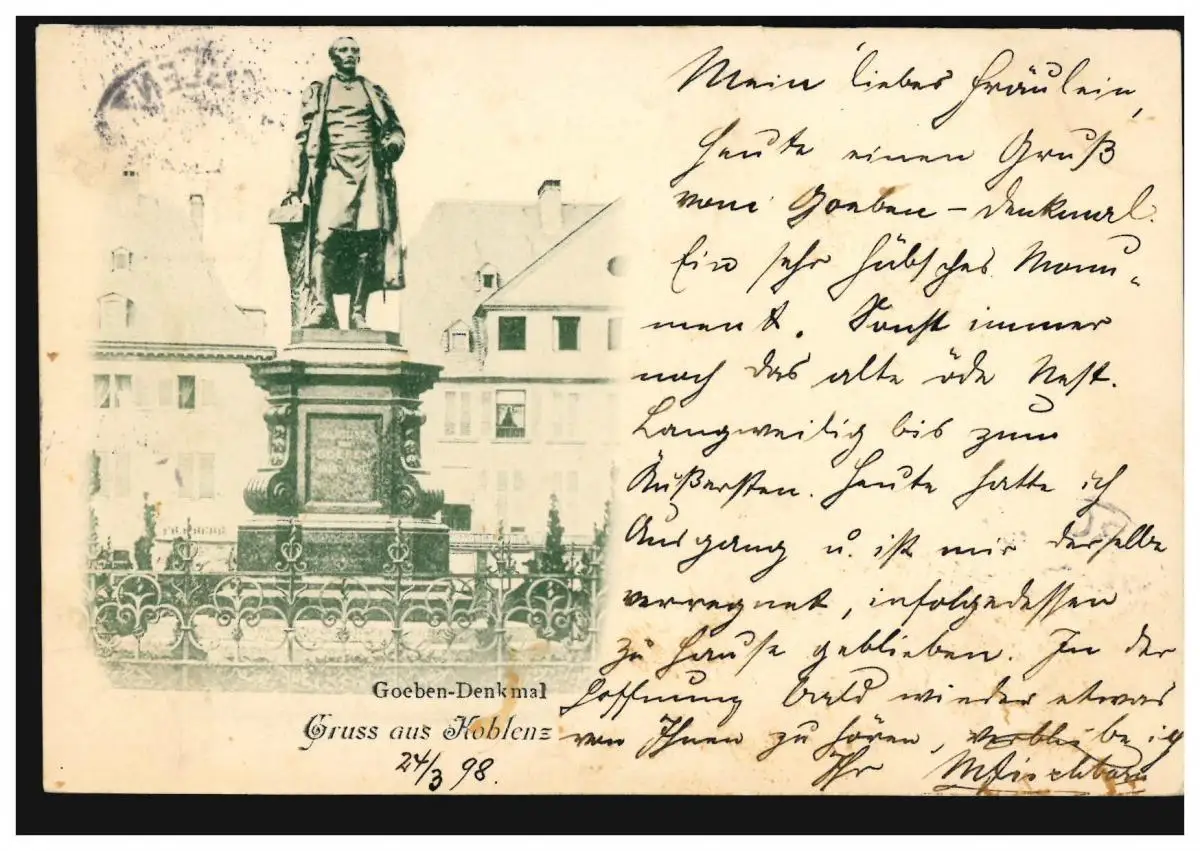 Mein liebes Fräulein,
Heute einen Gruß
vom Goeben-Denkmal.
Ein sehr hübsches Monu-
ment. Sonst immer
noch das alte öde Nest.
Langweilig bis zum
Äußersten. Heute hatte ich
Ausgang u. ist mir derselbe
verregnet, infolgedessen
zu Hause geblieben. In der
Hoffnung bald wieder etwas
von Ihnen zu hören, verbleibe ich
Ihr
GOEBEN
Goeben-Denkmal
Gruss aus Koblenz
24/3 98.